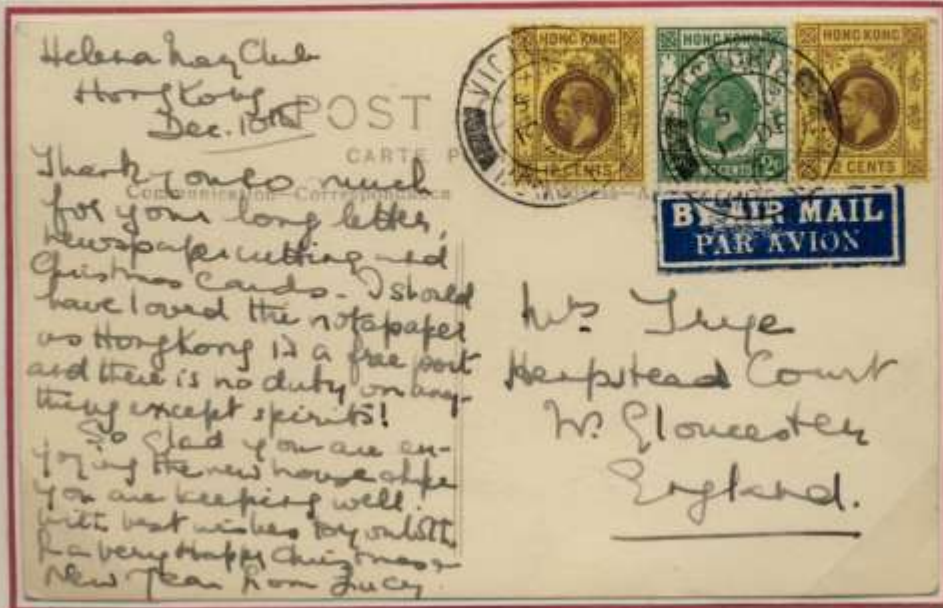 Helena May Club
Hong Kong
Dec. 10th
POST
CARTE P
Communication—Correspondance
Thank you so much
for your long letter,
newspaper cutting and
Christmas Cards. I should
have loved the notepaper
as Hong Kong is a free port
and there is no duty on any-
thing except spirits!
So glad you are en-
joying the new house & hope
you are keeping well.
With best wishes to you both
for a very Happy Christmas &
New Year from Lucy
HONG KONG
12 CENTS
HONG KONG
2c
HONG KONG
12 CENTS
VICTORIA
BY AIR MAIL
PAR AVION
Mrs
Hempstead Court
Nr. Gloucester
England.